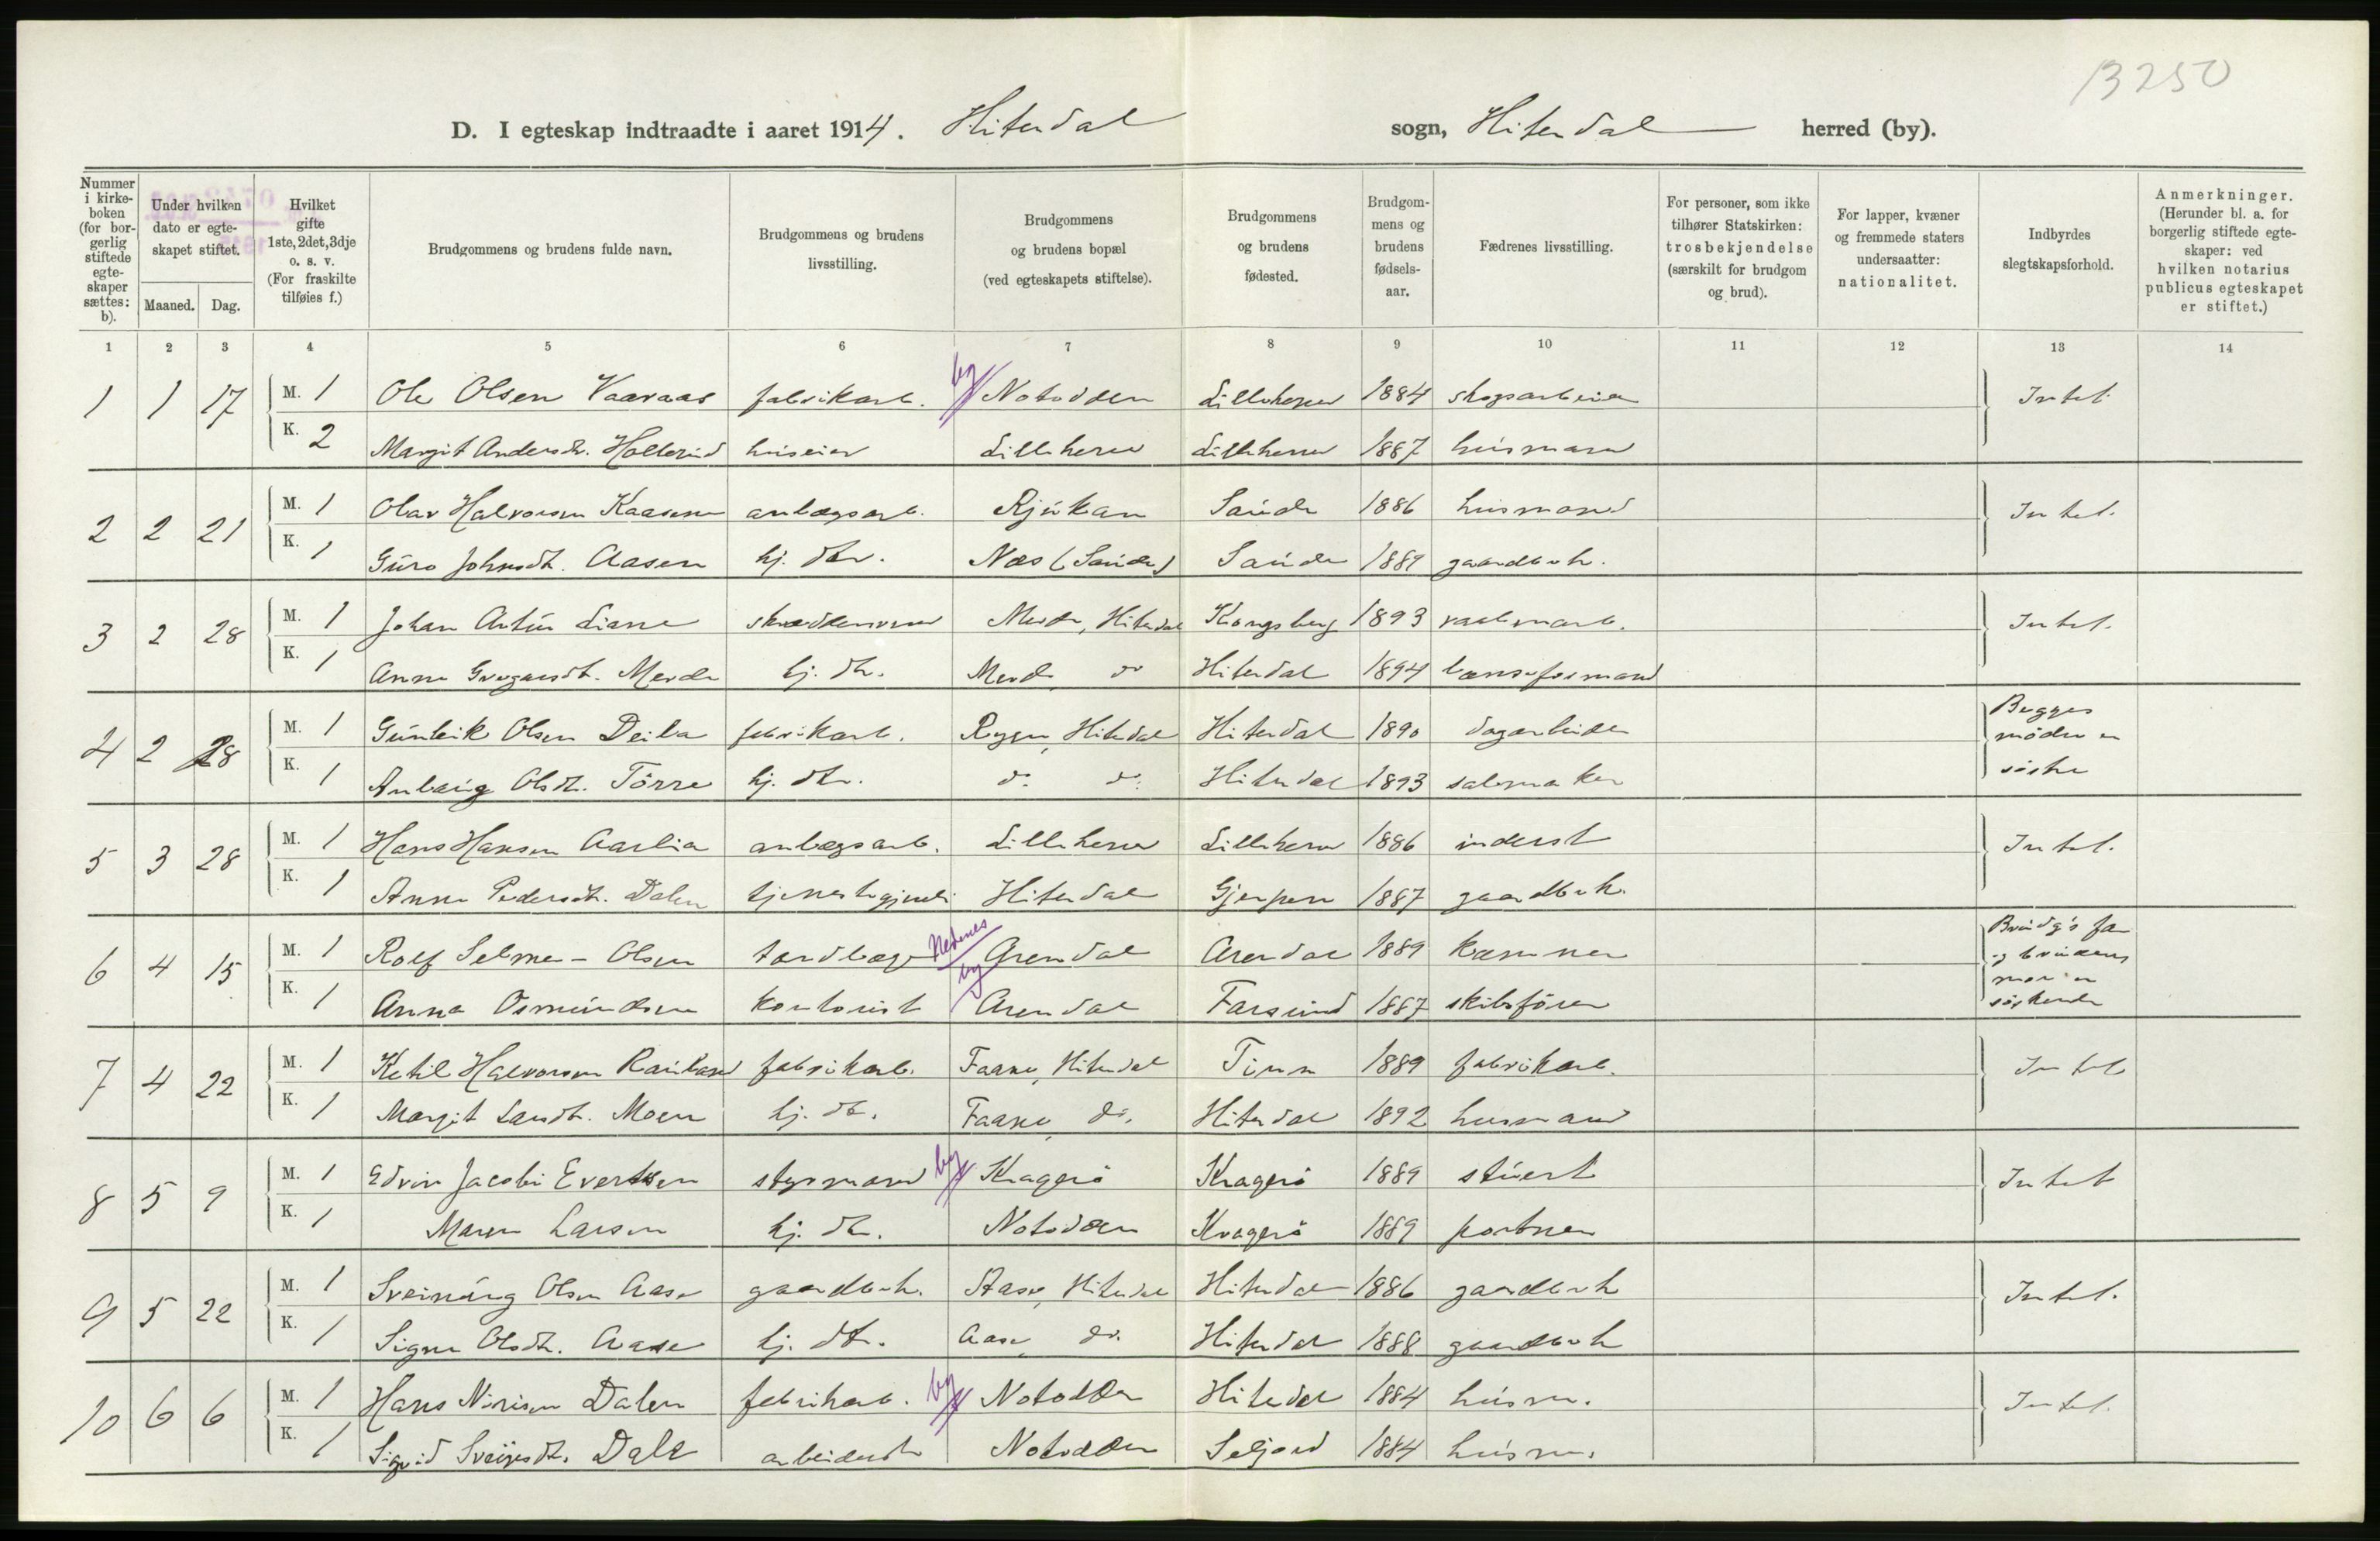 13250
D. I egteskap indtraadte i aaret 1914. Hiterdal sogn, Hiterdal herred (by).
Nummer i kirkeboken (for borgerlig stiftede egteskaper sættes: b).
Under hvilken dato er egteskapet stiftet.
Maaned. Dag.
Hvilket gifte 1ste, 2det, 3dje o. s. v. (For fraskilte tilføies f.)
Brudgommens og brudens fulde navn.
Brudgommens og brudens livsstilling.
Brudgommens og brudens bopæl (ved egteskapets stiftelse).
Brudgommens og brudens fødested.
Brudgommens og brudens fødselsaar.
Fædrenes livsstilling.
For personer, som ikke tilhører Statskirken: trosbekjendelse (særskilt for brudgom og brud).
For lapper, kvæner og fremmede staters undersaatter: nationalitet.
Indbyrdes slegtskapsforhold.
Anmerkninger. (Herunder bl. a. for borgerlig stiftede egteskaper: ved hvilken notarius publicus egteskapet er stiftet.)
1 2 3 4 5 6 7 8 9 10 11 12 13 14
1 1 17 M. 1 Ole Olsen Vaaraas fabrikarb. by Notodden Lilleherred 1884 skogsarbeider Intet
K. 2 Margit Andersdt. Hollerud huseier Lilleherred Lilleherred 1887 husmand
2 2 21 M. 1 Olav Halvorsen Kaasene anlægsarb. Rjukan Saude 1886 husmand Intet.
K. 1 Guro Johnsdt. Aasen hj. dtr. Næs (Saude) Saude 1889 gaardbruk.
3 2 28 M. 1 Johan Artur Liane skræddersvend Merde, Hiterdal Kongsberg 1893 valsemarb. Intet.
K. 1 Anne Gregarsdt. Merde hj. dtr. Merde do Hiterdal 1894 lænseformand
4 2 28 M. 1 Gunleik Olsen Deila fabrikarb. Rygen, Hiterdal Hiterdal 1890 dagarbeider Begges mödre er söstre
K. 1 Anlaug Olsdt. Törre hj. dtr. do. do. Hiterdal 1893 salemaker
5 3 28 M. 1 Hans Hansen Aarlia anlægsarb. Lilleherred Lilleherred 1886 inderst Intet.
K. 1 Anne Pedersdt. Dalen tjenestepike Hiterdal Gjerpen 1887 gaardbruk.
6 4 15 M. 1 Rolf Selmer-Olsen tandlæge Nedenes Arendal Arendal 1889 kæmner Brudg's far og brudens mor er söskende
K. 1 Anna Osmundsen kontorist by Arendal Farsund 1887 skibsförer
7 4 22 M. 1 Ketil Halvorsen Raukaas fabrikarb. Faane, Hiterdal Tinn 1889 fabrikarb. Intet
K. 1 Margit Larsdt. Moen hj. dt. Faane, do. Hiterdal 1892 husmand
8 5 9 M. 1 Edvin Jacobi Evertsen styrmand by Kragerö Kragerö 1889 stuert Intet
K. 1 Maren Larsen hj. dtr. Notodden Kragerö 1889 portner
9 5 22 M. 1 Sveinung Olsen Aase gaardbruk. Aase, Hiterdal Hiterdal 1886 gaardbruk Intet.
K. 1 Signe Olsdt. Aase hj. dtr. Aase, do. Hiterdal 1888 gaardbruk
10 6 6 M. 1 Hans Nirisen Dalen fabrikarb. by Notodden Hiterdal 1884 husm. Intet.
K. 1 Sigrid Sveinsdt. Dale arbeiderske Notodden Seljord 1884 husm.